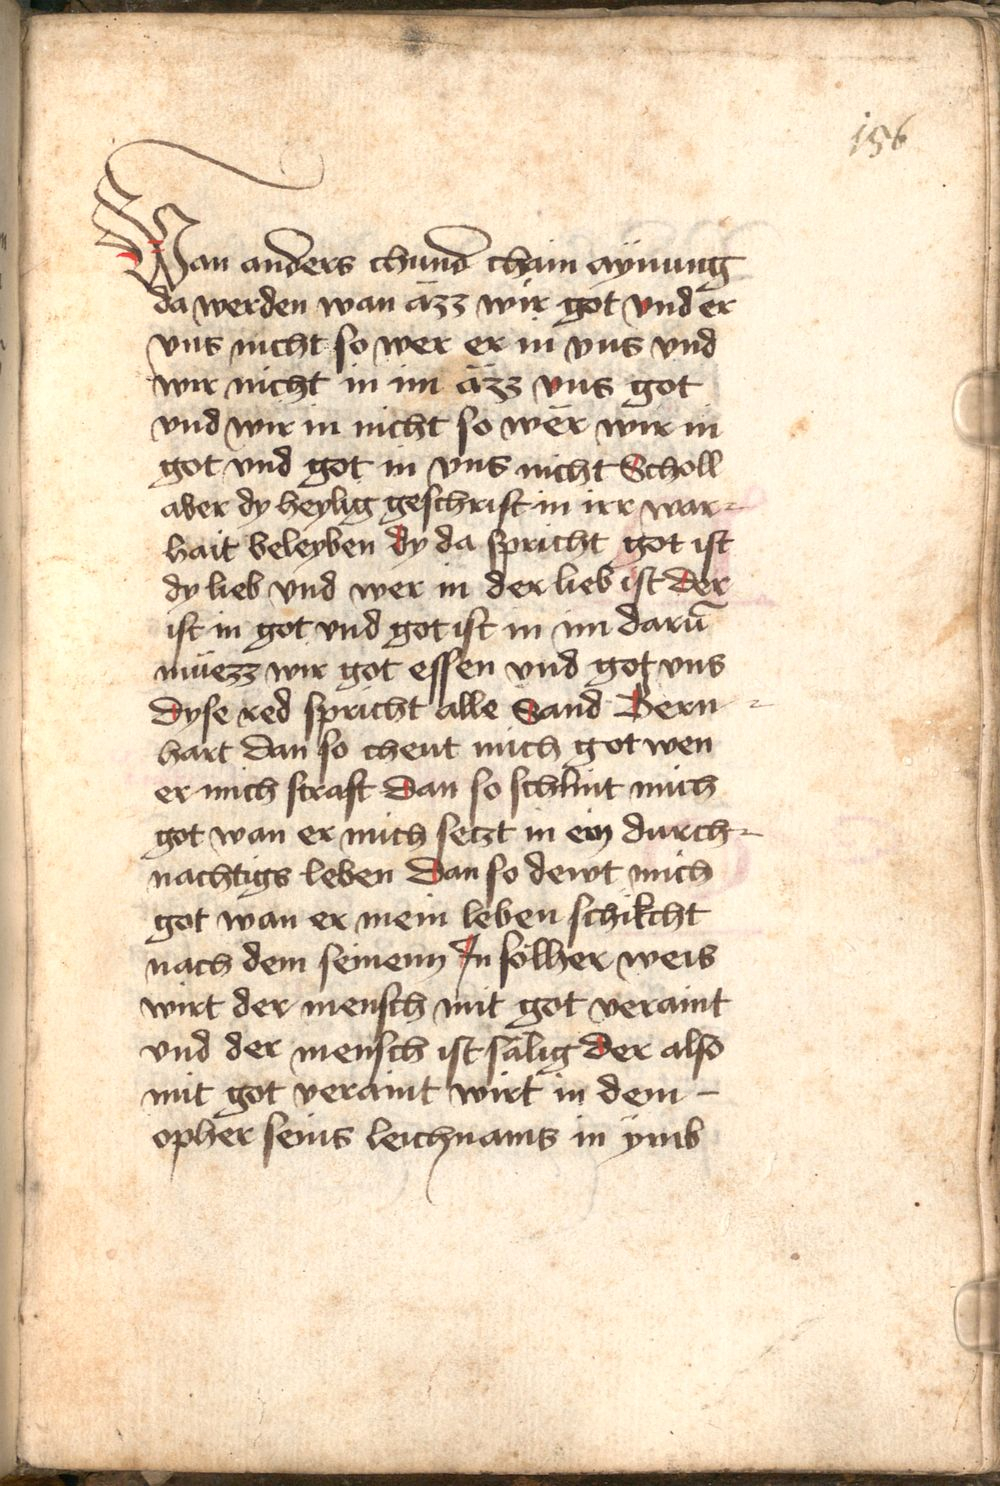 156
Wan anders chund chain aÿnung
da werden wan äzz wir got vnd er
vns nicht so wer er in vns vnd
wir nicht in im äzz vns got
vnd wir in nicht so wer wir in
got vnd got in vns nicht Scholl
aber dy heylig geschrift in irr war-
hait beleyben dy da spricht got ist
dy lieb vnd wer in der lieb ist Der
ist in got vnd got ist in im darū
müezz wir got essen vnd got vns
Dyse red spricht alle Sand Bern-
hart Dan so cheut mich got wen
er mich straft Dan so schlint mich
got wan er mich setzt in eyn durch-
nachtigs leben Dan so dewt mich
got wan er mein leben schikcht
nach dem seinenn In sölher weis
wirt der mensch mit got veraint
vnd der mensch ist sälig Der also
mit got veraint wirt in dem -
opher seins leichnams in ymb